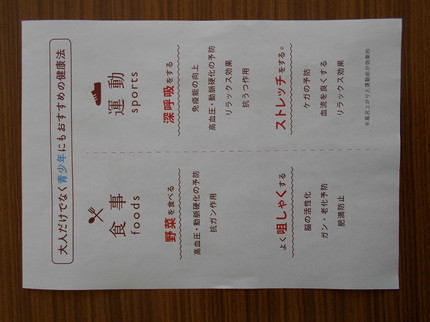 大人だけでなく青少年にもおすすめの健康法
食事
foods
野菜を食べる
高血圧・動脈硬化の予防
抗ガン作用
よく咀しゃくする
脳の活性化
ガン・老化予防
肥満防止
運動
sports
深呼吸をする
免疫能の向上
高血圧・動脈硬化の予防
リラックス効果
抗うつ作用
ストレッチをする※
ケガの予防
血流を良くする
リラックス効果